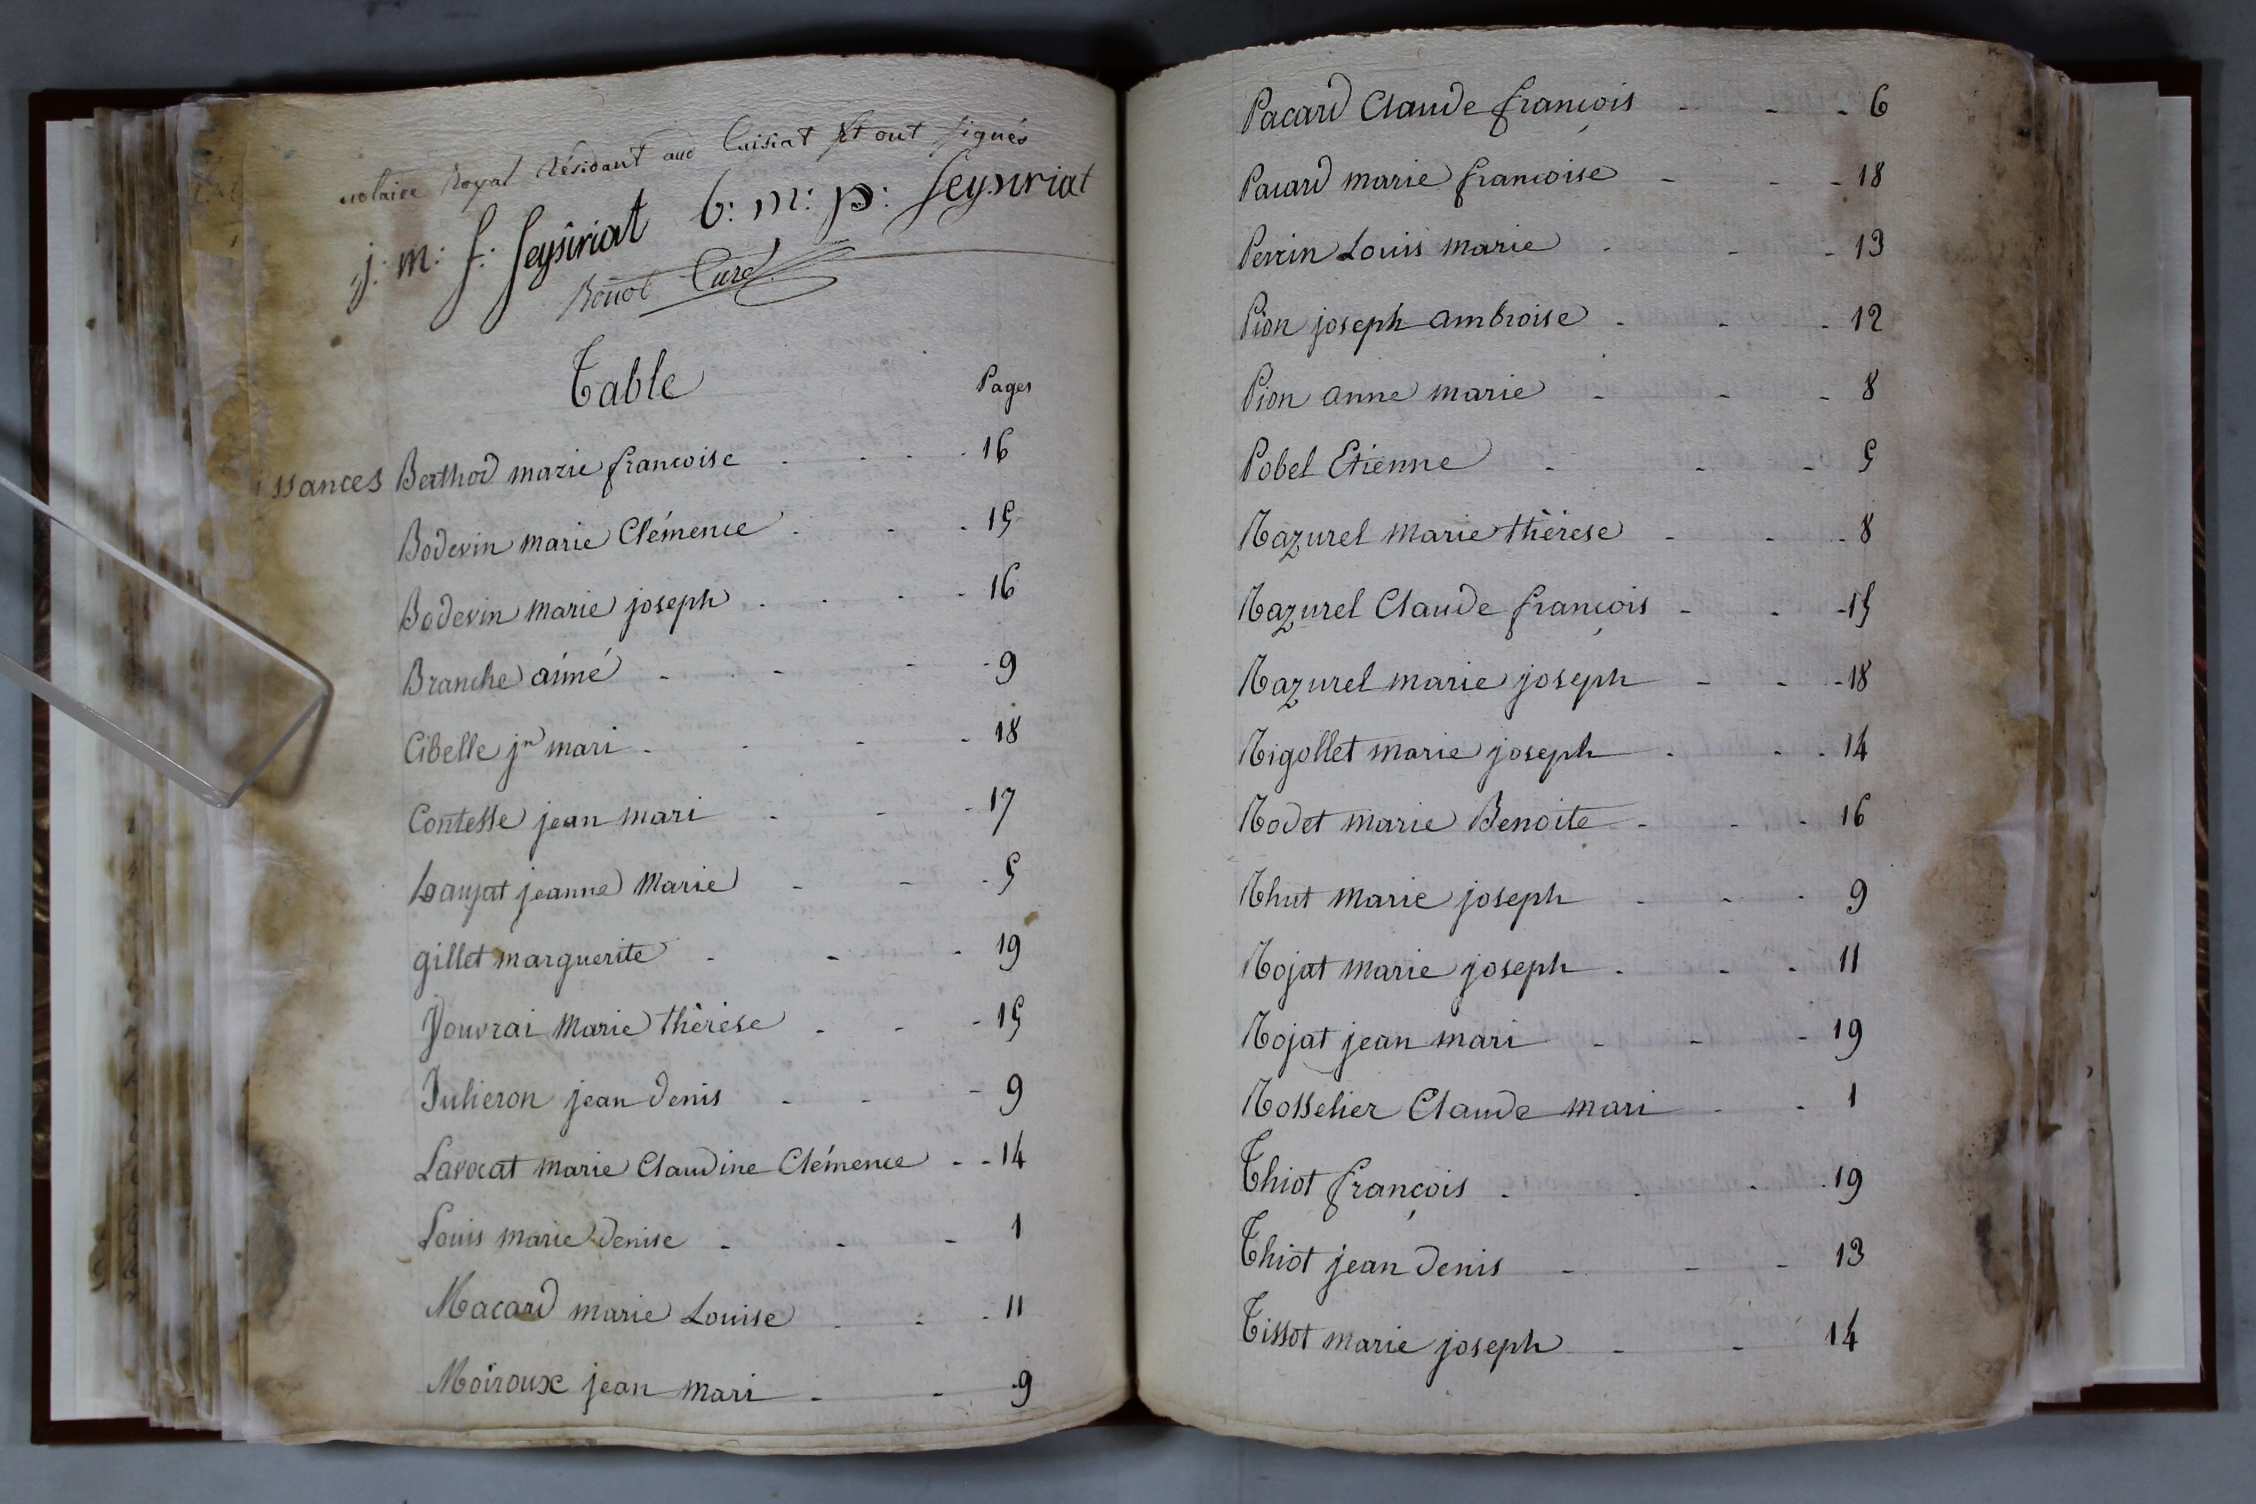 notaire Royal Résidant aud Cuisiat Et ont signés
j: m: f: seysiriat b: m: p: seysiriat
Curé
Table
Pages
issances Berthod marie francoise - - - - 16
Bodevin marie Clémence - - - 15
Bodevin marie joseph - - - - 16
Branche aimé - - - - 9
Cibelle jn mari - - - - 18
Contesse jean mari - - - 17
jeanne Marie - - - 5
gillet marguerite - - - 19
Jouvrai Marie thérèse - - - 15
Julieron jean denis - - - 9
Lavocat marie Claudine Clémence - - 14
Louis marie denise - - - 1
Macard marie Louise - - - 11
Moiroux jean mari - - 9
Pacard Claude françois - - - 6
Pacard marie francoise - - - 18
Perrin Louis marie - - - 13
Pion joseph ambroise - - - 12
Pion anne marie - - - 8
Pobel Etienne - - - 5
Razurel marie thérese - - - 8
Razurel Claude françois - - - 15
Razurel marie joseph - - - 18
Rigollet marie joseph - - - 14
Rodet marie Benoite - - - 16
Rhut marie joseph - - - 9
Rojat marie joseph - - - 11
Rojat jean mari - - - 19
Rosselier Claude mari - - 1
Thiot françois - - - - 19
Thiot jean denis - - - 13
Tissot marie joseph - - 14